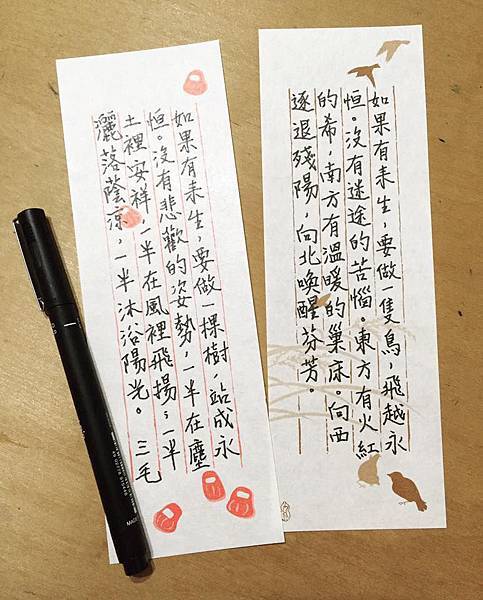 如果有来生，要做一隻鳥，飛越永
恒。沒有迷途的苦惱。東方有火紅
的希，南方有溫暖的巢床。向西
逐退殘陽，向北喚醒芬芳。
如果有来生，要做一棵樹，站成永
恒。沒有悲歡的姿勢，一半在塵
土裡安祥，一半在風裡飛揚；一半
灑落蔭涼，一半沐浴陽光。 三毛